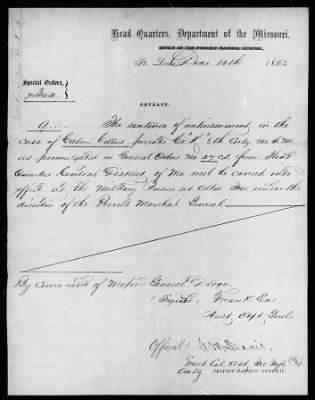 Head Quarters, Department of the Missouri,
OFFICE OF THE PROVOST MARSHAL GENERAL,
St. Louis, 14th 186
Special Orders,
EXTRACT.
The sentence of imprisonment in the
case of Calvin private Co. 8th Cav. M. S. M.
as promulgated in General Orders No 37 from Head
Quarters Central District of Mo will be carried into
effect at the Military Prison at Alton Ills. under the
direction of the Provost Marshal General
By command of Major General Dodge
(Signed) Frank Eno
Asst Adjt Genl.
Official
Lieut Col. 51st Mo
PROVOST MARSHAL GENERAL